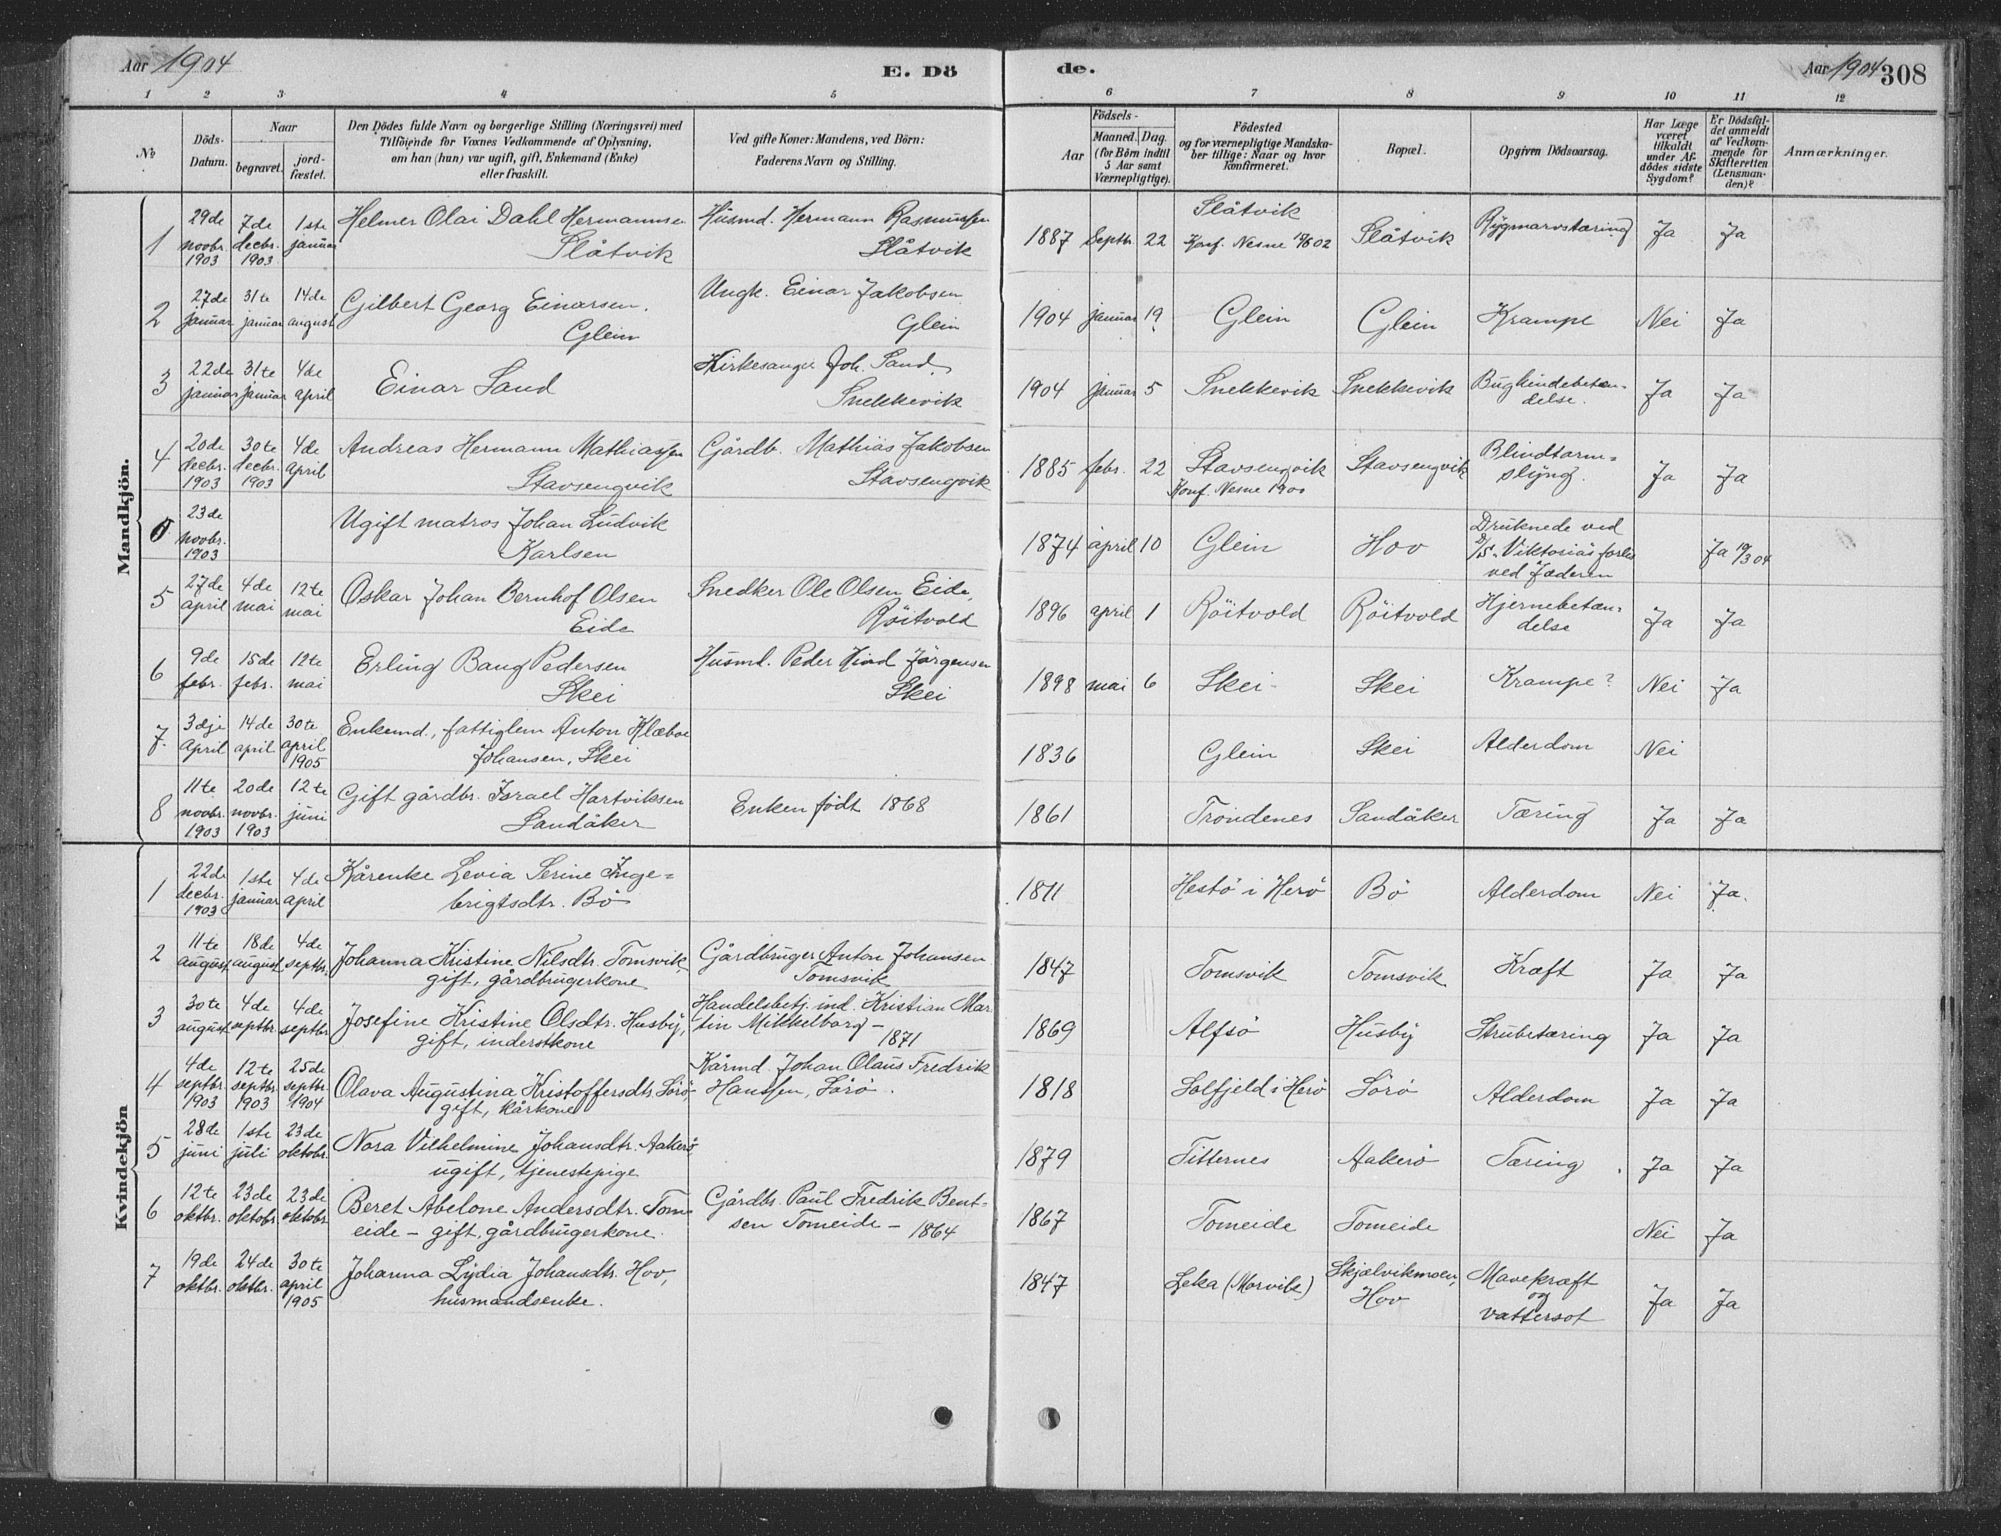 Aar 1904
E. Dö
de.
Aar 1904 308
1 2 3 4 5 6 7 8 9 10 11 12
No
Döds-
Datum.
Naar
begravet.
jord-
fæstet.
Den Dödes fulde Navn og borgerlige Stilling (Næringsvei) med
Tilföiende for Voxnes Vedkommende af Oplysning,
om han (hun) var ugift, gift, Enkemand (Enke)
eller fraskilt.
Ved gifte Koner: Mandens, ved Börn:
Faderens Navn og Stilling.
Födsels-
Aar
Maaned. Dag.
(for Börn indtil
5 Aar samt
Værnepligtige).
Födested
og for værnepligtige Mandska-
ber tillige: Naar og hvor
konfirmeret.
Bopæl.
Opgiven Dödsaarsag.
Har Læge
været
tilkaldt
under Af-
dödes sidste
Sygdom?
Er Dödsfal-
det anmeldt
af Vedkom-
mende for
Skifteretten
(Lensman-
den)?
Anmærkninger.
Mandkjön.
1 29de novbr. 1903 7de decbr. 1903 1ste januar Helmer Olai Dahl Hermannsen Slåtvik Husmd. Hermann Rasmussen Slåtvik 1887 Septbr. 22 Slåtvik Konf. Nesne 1902 Slåtvik Rygmarvstæring Ja Ja
2 27de januar 31te januar 14de august Gilbert Georg Einarsen. Glein Ungk. Einar Jakobsen Glein 1904 januar 19 Glein Glein Krampe Nei Ja
3 22de januar 31te januar 4de april Einar Sand Kirkesanger Joh. Sand, Snekkevik 1904 januar 5 Snekkevik Snekkevik Bughindebetændelse. Ja Ja
4 20de decbr. 1903 30te decbr. 1903 4de april Andreas Hermann Mathiassen Stavsengvik Gårdb. Mathias Jakobsen Stavsengvik 1885 febr. 22 Stavsengvik Konf. Nesne 1900 Stavsengvik Blindtarmslyng. Ja Ja
0 23de novbr. 1903 Ugift matros Johan Ludvik Karlsen 1874 april 10 Glein Hov Druknede ved D/S. Viktorias forlis ved Jæderen Ja 19/3 04
5 27de april 4de mai 12te mai Oskar Johan Bernhof Olsen Eide Snedker Ole Olsen Eide, Röitvold 1896 april 1 Röitvold Röitvold Hjernebetændelse Ja Ja
6 9de febr. 15de febr. 12te mai Erling Bang Pedersen Skei Husmd. Peder Hind Jörgensen Skei 1898 mai 6 Skei Skei Krampe? Nei Ja
7. 3dje april 14de april 30te april 1905 Enkemd., fattiglem Anton Klæboe Johansen, Skei 1836 Glein Skei Alderdom Nei
8 11te novbr. 1903 20de novbr. 1903 12te juni Gift gårdbr. Israel Hartviksen Sandåker Enken född 1868 1861 Trondenes Sandåker Tæring Ja Ja
Kvindekjön
1 22de decbr. 1903 1ste januar 4de april Kårenke Levia Serine Ingebrigtsdtr. Bö 1811 Hestö i Herö Bö Alderdom Nei Ja.
2 11te august 18de august 4de septbr. Johanna Kristine Nilsdtr. Tomsvik, gift, gårdbrugerkone Gårdbruger Anton Johansen Tomsvik 1847 Tomsvik Tomsvik Kræft Ja Ja
3 30te august 4de septbr. 4de septbr. Josefine Kristine Olsdtr. Husby, gift, inderstkone Handelsbetj. ind. Kristian Martin Mikkelborg – 1871 1869 Alfsö Husby Strubetæring Ja Ja
4 4de septbr. 1903 12te septbr. 1903 25de septbr. 1904 Olava Augustina Kristoffersdtr. Sörö, gift, kårkone Kårmd. Johan Olaus Fredrik Hanssen, Sörö. 1818 Solfjeld i Herö Sörö Alderdom Ja Ja
5 28de juni 1ste juli 23de oktobr. Nora Vilhelmine Johansdtr. Aakerö ugift, tjenestepige 1879 Titternes Aakerö Tæring Ja Ja
6 12te oktbr. 23de oktobr. 23de oktobr. Beret Abelone Andersdtr. Tomeide – gift, gårdbrugerkone. Gårdbr. Paul Fredrik Bentsen Tomeide – 1864 1867 Tomeide Tomeide Nei Ja
7 19de oktbr. 24de oktbr. 30te april 1905 Johanna Lydia Johansdtr. Hov, husmandsenke. 1847 Leka (Morvik) Skjælvikmoen, Hov Mavekræft og vattersot Ja Ja